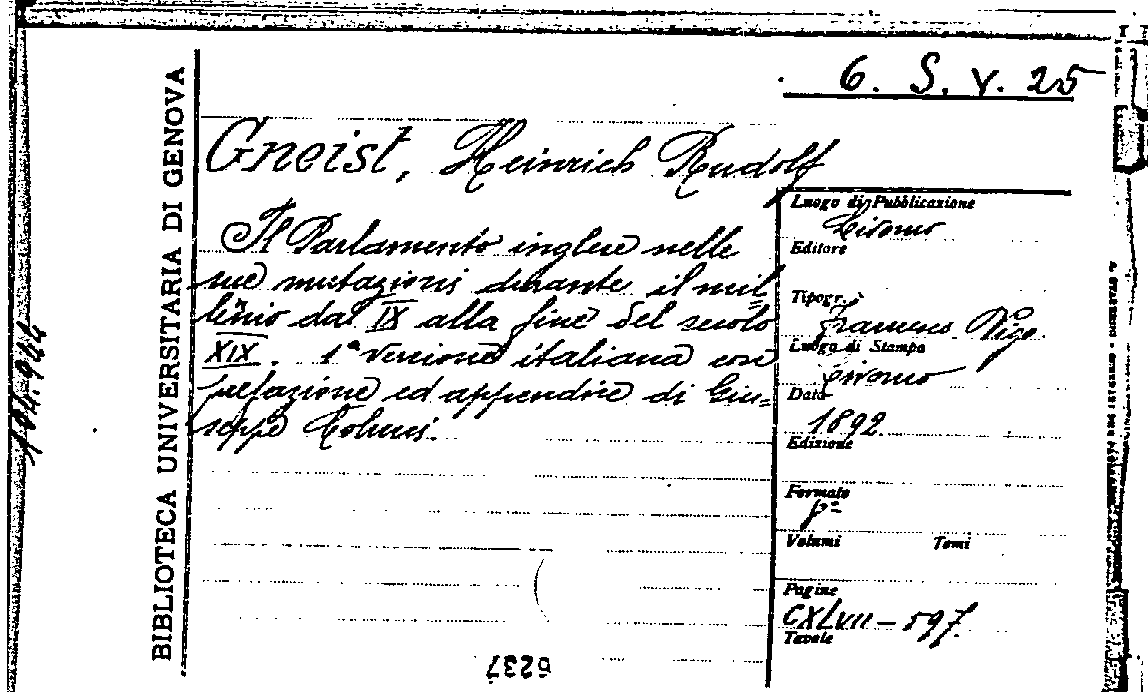 6. S. V. 25
BIBLIOTECA UNIVERSITARIA DI GENOVA
Gneist, Heinrich Rudolf
Il Parlamento inglese nelle
sue mutazioni durante il mil=
lenio dal IX alla fine del secolo
XIX. 1ª versione italiana con
prefazione ed appendice di Giu=
seppe
Luogo di Pubblicazione
Livorno
Editore
Tipogr.
Francesco Vigo
Luogo di Stampa
Livorno
Data
1892
Edizione
Formato
Volumi Tomi
Pagine
CXLVII - 597.
Tavole
6237